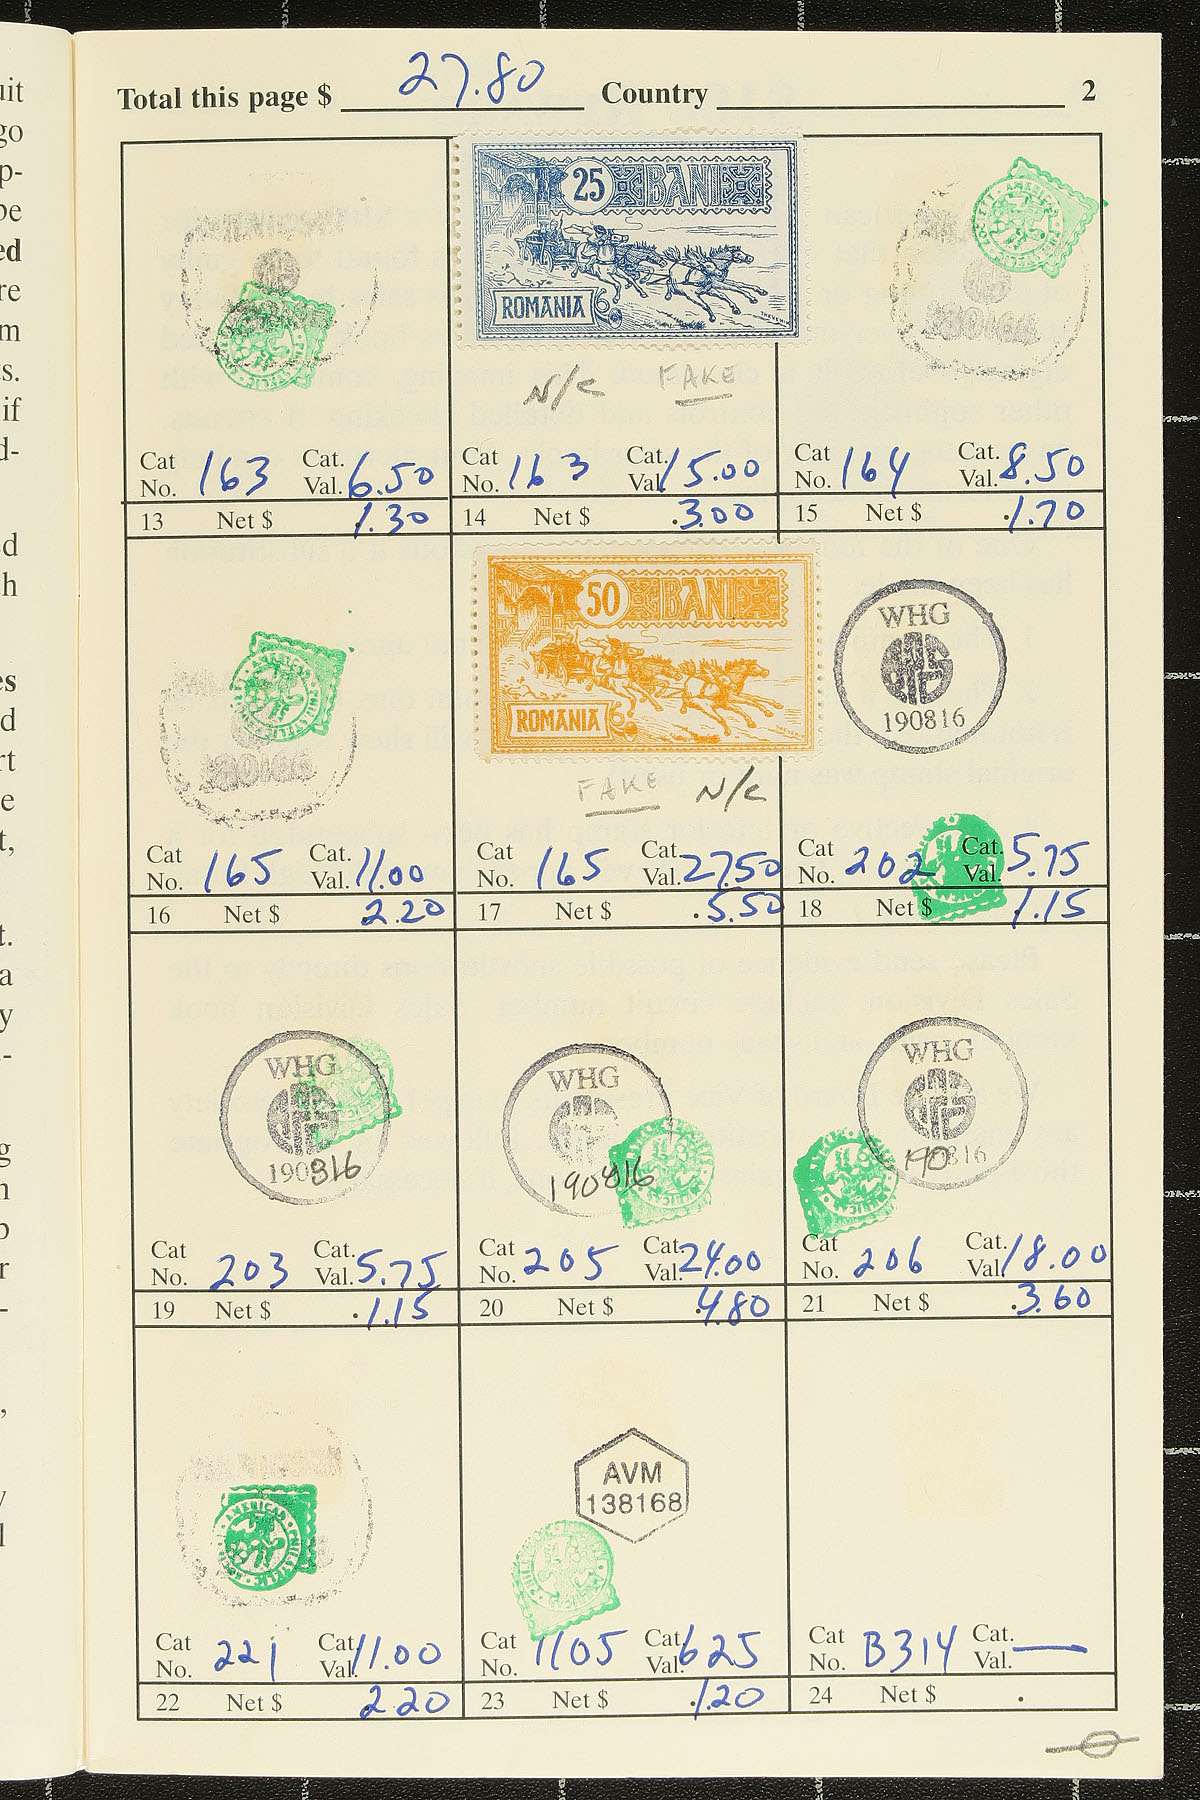 Total this page $ 27.80 Country 2
25 BANI
ROMANIA
N/C FAKE
Cat No. 163 Cat. Val. 6.50
13 Net $ 1.30
Cat No. 163 Cat. Val. 15.00
14 Net $ .3.00
Cat No. 164 Cat. Val. 8.50
15 Net $ .1.70
50 BANI
ROMANIA
FAKE N/C
WHG
190816
Cat No. 165 Cat. Val. 11.00
16 Net $ 2.20
Cat No. 165 Cat. Val. 27.50
17 Net $ .5.50
Cat No. 202 Cat. Val. 5.75
18 Net $ 1.15
WHG
190816
WHG
190816
WHG
190816
Cat No. 203 Cat. Val. 5.75
19 Net $ .1.15
Cat No. 205 Cat. Val. 24.00
20 Net $ .4.80
Cat No. 206 Cat. Val. 18.00
21 Net $ .3.60
AMERICAN PHILATELIC SOCIETY
AVM
138168
Cat No. 221 Cat. Val. 11.00
22 Net $ 2.20
Cat No. 1105 Cat. Val. 6.25
23 Net $ .1.20
Cat No. B314 Cat. Val. —
24 Net $ .